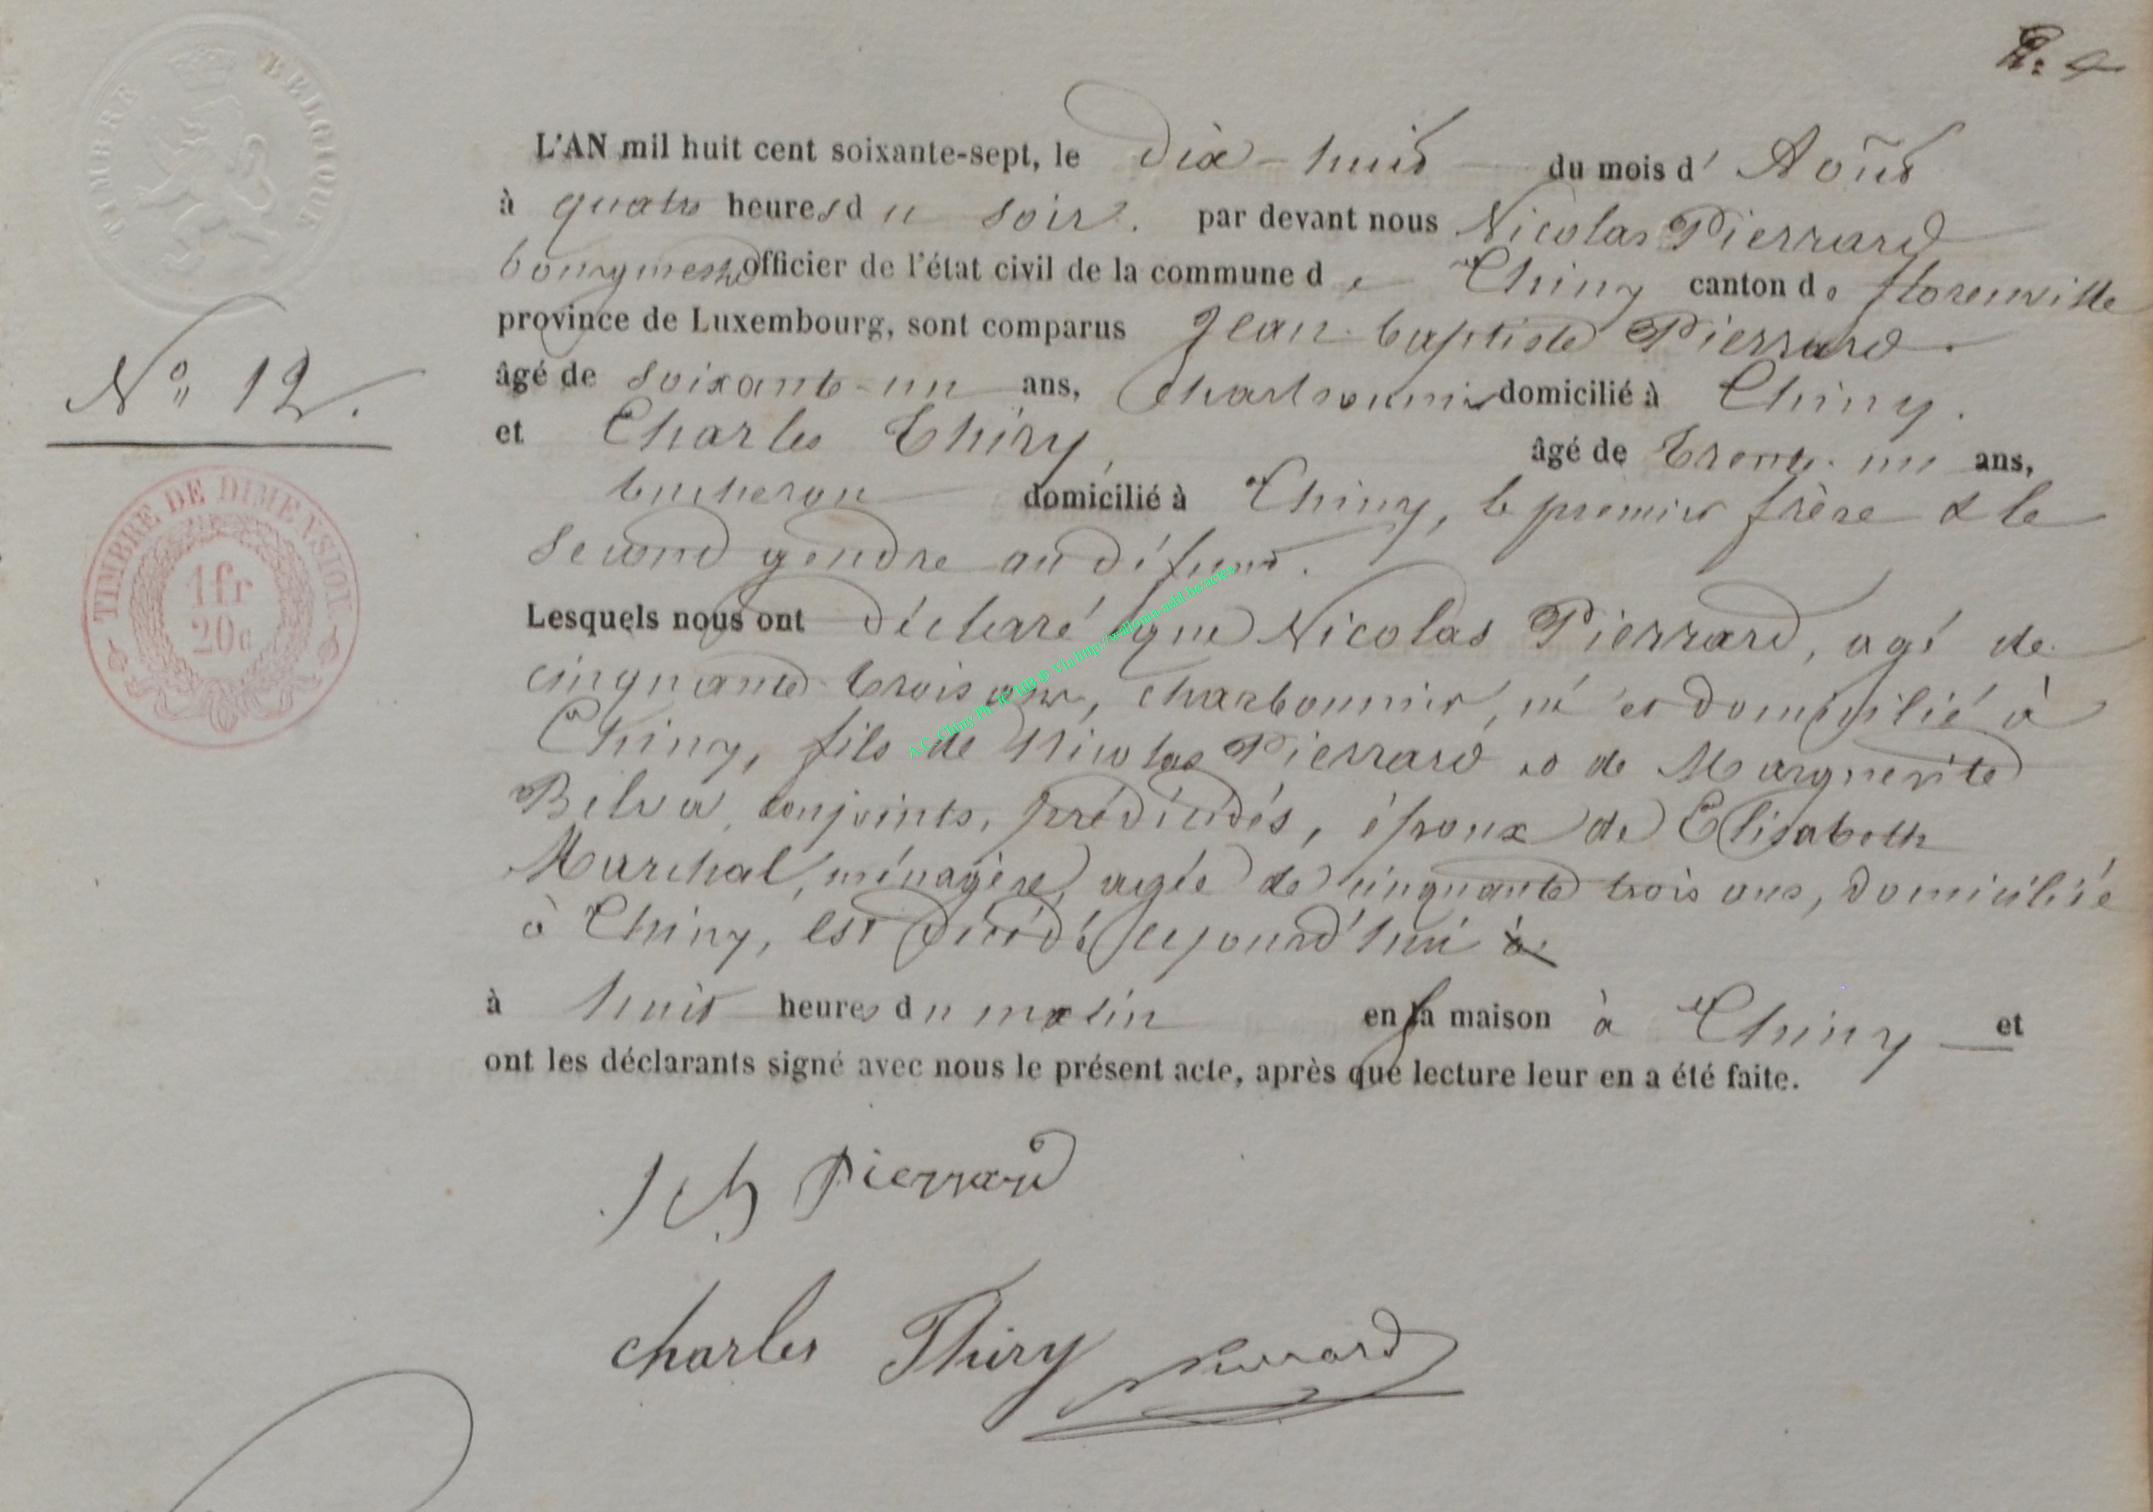 TIMBRE BELGIQUE
L'AN mil huit cent soixante-sept, le dix-huit du mois d'Août
à quatre heures du soir. par devant nous Nicolas Pierrard
bourgmestre officier de l'état civil de la commune de Chiny canton de florenville
province de Luxembourg, sont comparus Jean-baptiste Pierrard.
âgé de soixante-un ans, Charbonnier domicilié à Chiny.
N° 12.
et Charles Thiry, âgé de trente-un ans,
bucheron domicilié à Chiny, le premier frère & le
second gendre au défunt.
TIMBRE DE DIMENSION
1fr
20c
Lesquels nous ont déclaré que Nicolas Pierrard, agé de
cinquante-trois ans, charbonnier, né et domicilié à
Chiny, fils de Nicolas Pierrard et de Marguerite
Bilva, conjoints, prédécédés, époux de Elisabeth
Marchal, ménagère, agée de cinquante trois ans, domiciliée
à Chiny, est décédé aujourd'hui à
à huit heures du matin en sa maison à Chiny et
ont les déclarants signé avec nous le présent acte, après que lecture leur en a été faite.
Pierrard
charles Thiry Pierrard